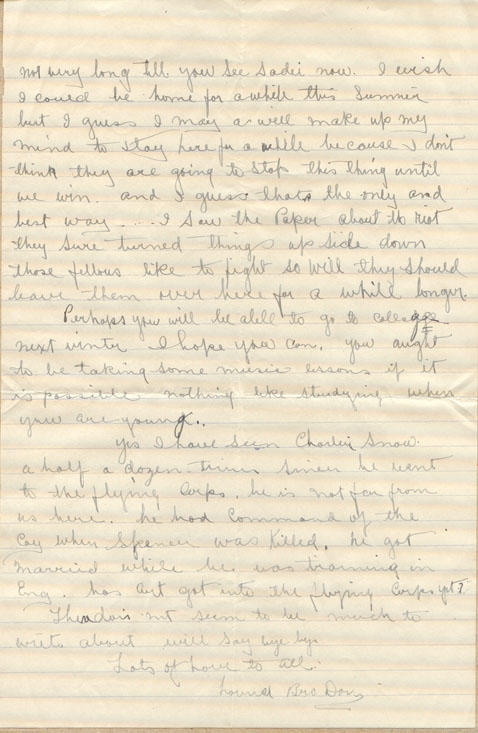 not very long till you see Sadie now. I wish
I could be home for a while this Summer
but I guess I may as well make up my
mind to stay here for a while because I dont
think they are going to stop this thing until
we win. and I guess thats the only and
best way.... I saw the Paper about the riot
they sure turned things up side down
those fellows like to fight so well they should
leave them over here for a while longer.
Perhaps you will be abell to go to college
next winter I hope you can. you aught
to be taking some music lessons if it
is possible nothing like studying when
you are young..
yes I have seen Charlie Snow.
a half a dozen times since he went
to the flying Corps. he is not far from
us here. he had Command of the
Coy when Spencer was Killed. he got
married while he was training in
Eng. has Art got into the flying Corps yet?
There dois not seem to be much to
write about will say bye bye
Lots of love to all.
Bro Don